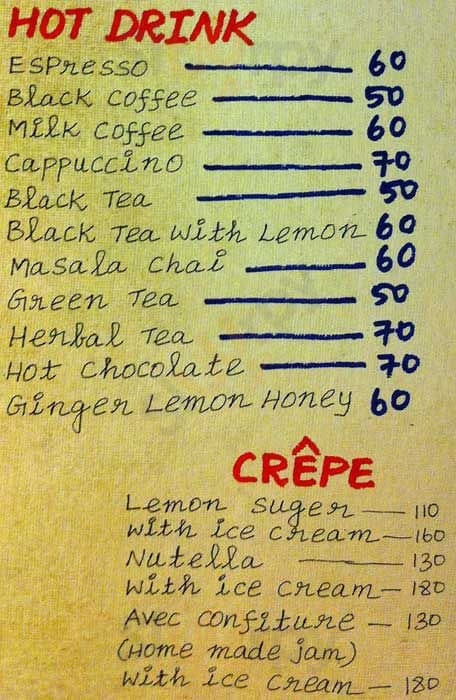 HOT DRINK
Espresso — 60
Black Coffee — 50
Milk Coffee — 60
Cappuccino — 70
Black Tea — 50
Black Tea With Lemon 60
Masala Chai — 60
Green Tea — 50
Herbal Tea — 70
Hot Chocolate — 70
Ginger Lemon Honey 60
CRÊPE
Lemon suger — 110
With ice cream — 160
Nutella — 130
With ice cream — 180
Avec confiture — 130
(Home made jam)
With ice cream — 180